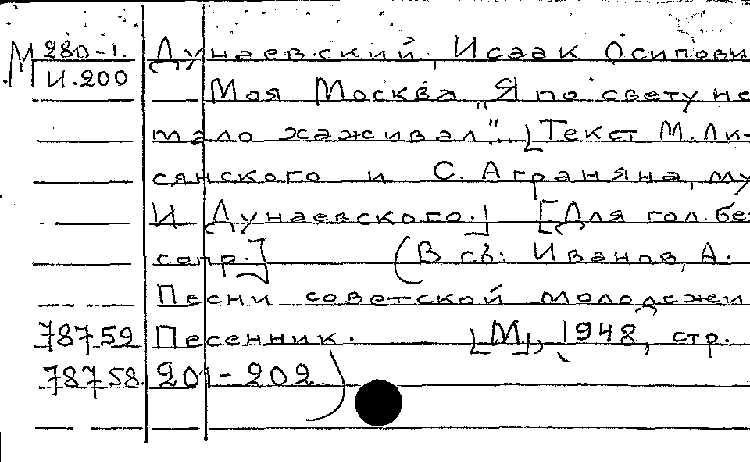 М 280-1. Дунаевский, Исаак Осипови
И.200 Моя Москва „Я по свету не
мало хаживал". [Текст М. Ли-
сянского и С. Аграняна, му
И Дунаевского.] [Для гол. без
сопр.] (В сб: Иванов, А.
Песни советской молодежи
78752 Песенник. [М], 1948, стр.
78758 201-202)